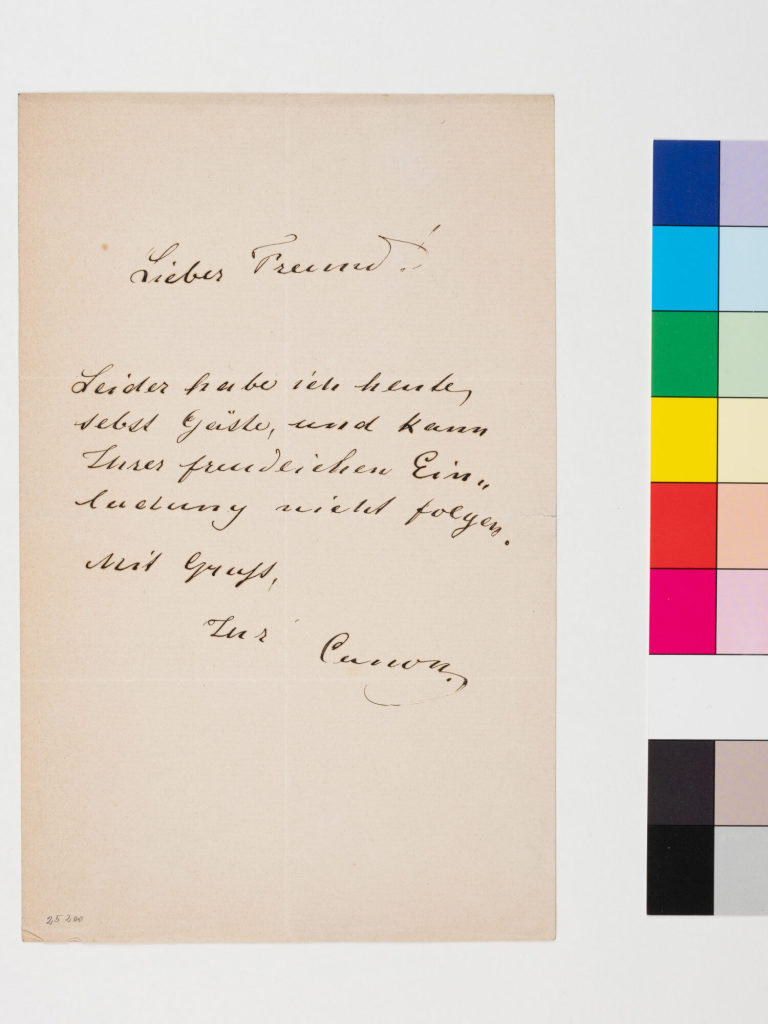 Lieber Freund!
Leider habe ich heute,
sebst Gäste, und kann
Ihrer freudlichen Ein„
ladung nicht folgen.
Mit Gruß,
Ihr
Canon.
25200